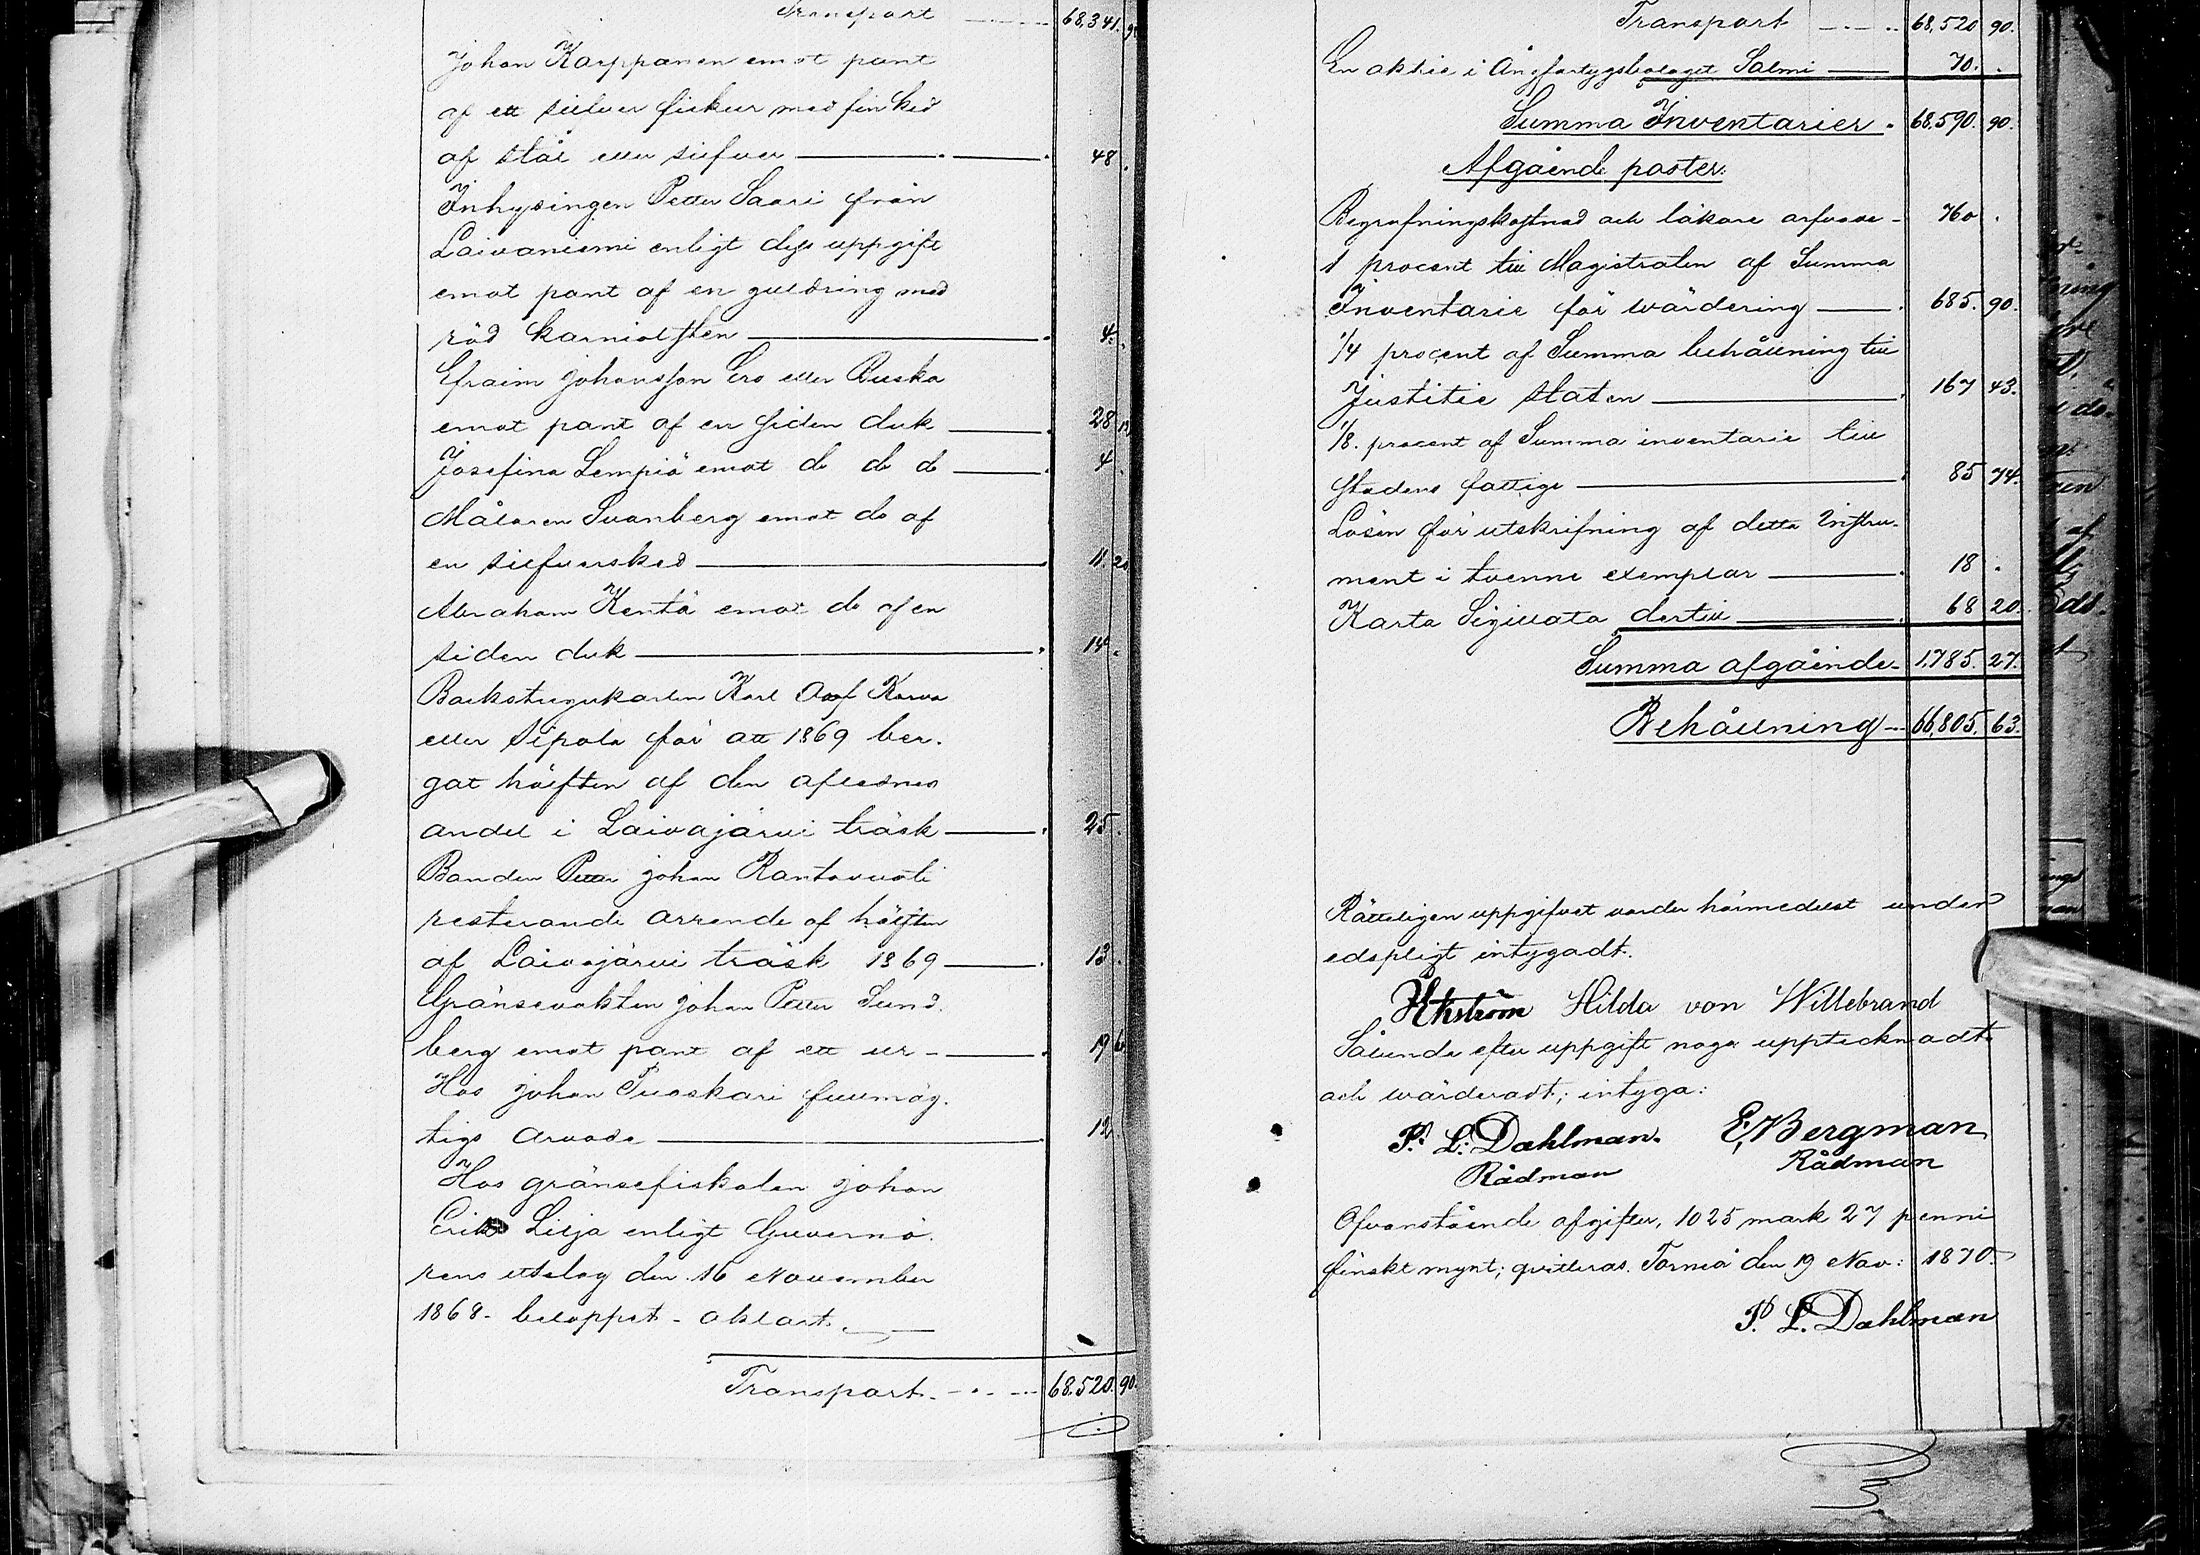 Transport 68,341.
Johan Karppanen emot pant
af ett silfver fickur med fin ked
af stål eller silfver 48.
Inhysingen Petter Saari från
Laivaniemi enligt dess uppgift
emot pant af en guldring med
röd karniolsten 4.
Efraim Johansson Ero eller Ruska
emot pant af en siden duk 28
Josefina Lempiä emot do do do 4.
Målaren Svanberg emot do af
en silfversked 11. 20
Abraham Kentä emot do af en
siden duk 14.
Backstugukarlen Karl Olof Karva
eller Sipola för att 1869 ber-
gat hälften af den aflednes
andel i Laivajärvi träsk 25.
Bonden Petter Johan Rantavuoti
resterande arrende af hälften
af Laivajärvi träsk 1869 13.
Gränsevakten Johan Petter Sund-
berg emot pant af ett ur 19
Hos Johan Puoskari fullmäg-
tigs arvode 12
Hos gränsefiskalen Johan
Erik Lilja enligt Guvernö-
rens utslag den 16 November
1868. beloppet oklart.
Transport 68.520. 90.
Transport 68,520 90.
En aktie i Ångfartygsbolaget Salmi 70.
Summa Inventarier. 68.590. 90.
Afgående poster:
Begrafningskostnad och läkare arfvode 760.
1 procent till Magistraten af Summa
Inventarie för wärdering 685. 90.
1/4 procent af Summa behållning till
Justitie Staten 167 43.
1/8. procent af Summa inventarie till
stadens fattige 85 74.
Lösen för utskrifning af detta Instru-
ment i tvenne exemplar 18.
Karta Sigillata dertill 68 20.
Summa afgående 1,785. 27.
Behållning 66,805. 63.
Rätteligen uppgifvet varder härmedelst under
edspligt intygadt.
HEkström Hilda von Willebrand
Sålunda efter uppgift noga upptecknadt
och wärderadt; intyga:
P. L. Dahlman. E, Bergman
Rådman Rådman
Ofvanstående afgifter, 1025 mark 27 penni
finskt mynt; qvitteras. Torneå den 19 Nov: 1870.
P. L. Dahlman